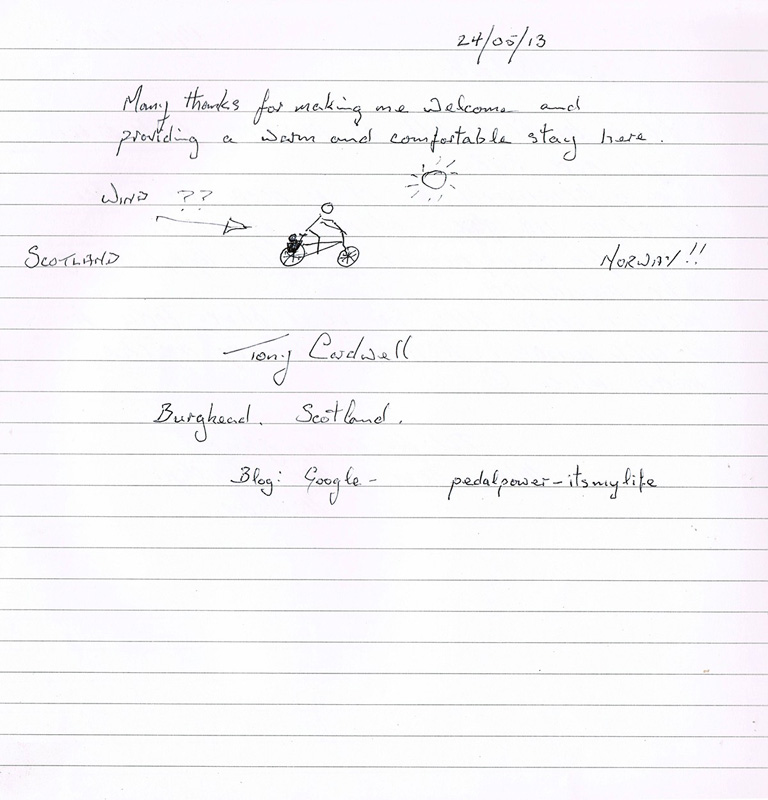 24/05/13
Many thanks for making me welcome and
providing a warm and comfortable stay here.
WIND ??
SCOTLAND NORWAY!!
Tony Cardwell
Burghead. Scotland.
Blog: Google - pedalpower-itsmylife